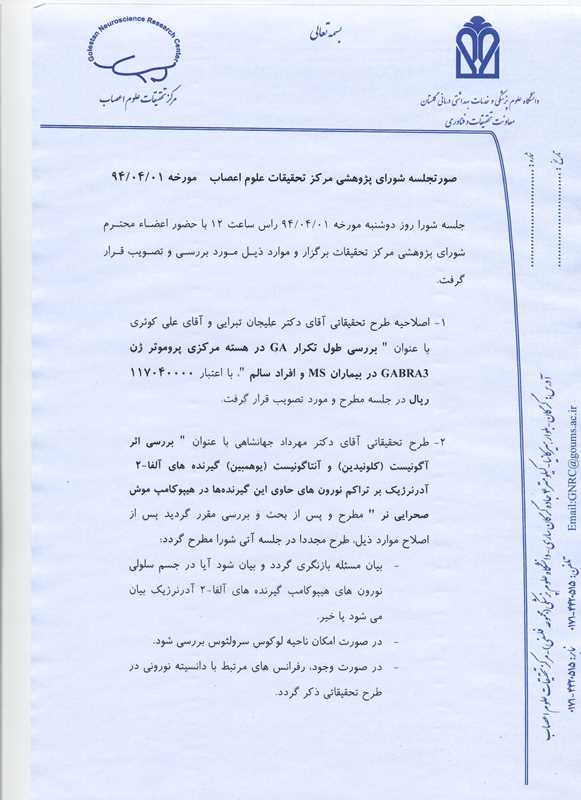 Golestan Neuroscience Research Center
مرکز تحقیقات علوم اعصاب
بسمه تعالی
دانشگاه علوم پزشکی و خدمات بهداشتی درمانی گلستان
معاونت تحقیقات و فناوری
تاریخ:
شماره:
صورتجلسه شورای پژوهشی مرکز تحقیقات علوم اعصاب مورخه ۹۴/۰۴/۰۱
جلسه شورا روز دوشنبه مورخه ۹۴/۰۴/۰۱ راس ساعت ۱۲ با حضور اعضاء محترم
شورای پژوهشی مرکز تحقیقات برگزار و موارد ذیل مورد بررسی و تصویب قرار
گرفت.
۱- اصلاحیه طرح تحقیقاتی آقای دکتر علیجان تبرایی و آقای علی کوثری
با عنوان " بررسی طول تکرار GA در هسته مرکزی پروموتر ژن
GABRA3 در بیماران MS و افراد سالم "، با اعتبار ۱۱۷۰۴۰۰۰۰
ریال در جلسه مطرح و مورد تصویب قرار گرفت.
۲- طرح تحقیقاتی آقای دکتر مهرداد جهانشاهی با عنوان " بررسی اثر
آگونیست (کلونیدین) و آنتاگونیست (یوهمبین) گیرنده های آلفا-۲
آدرنرژیک بر تراکم نورون های حاوی این گیرنده‌ها در هیپوکامپ موش
صحرایی نر " مطرح و پس از بحث و بررسی مقرر گردید پس از
اصلاح موارد ذیل، طرح مجددا در جلسه آتی شورا مطرح گردد:
- بیان مسئله بازنگری گردد و بیان شود آیا در جسم سلولی
نورون های هیپوکامپ گیرنده های آلفا-۲ آدرنرژیک بیان
می شود یا خیر.
- در صورت امکان ناحیه لوکوس سرولئوس بررسی شود.
- در صورت وجود، رفرانس های مرتبط با دانسیته نورونی در
طرح تحقیقاتی ذکر گردد.
Email:GNRC@goums.ac.ir